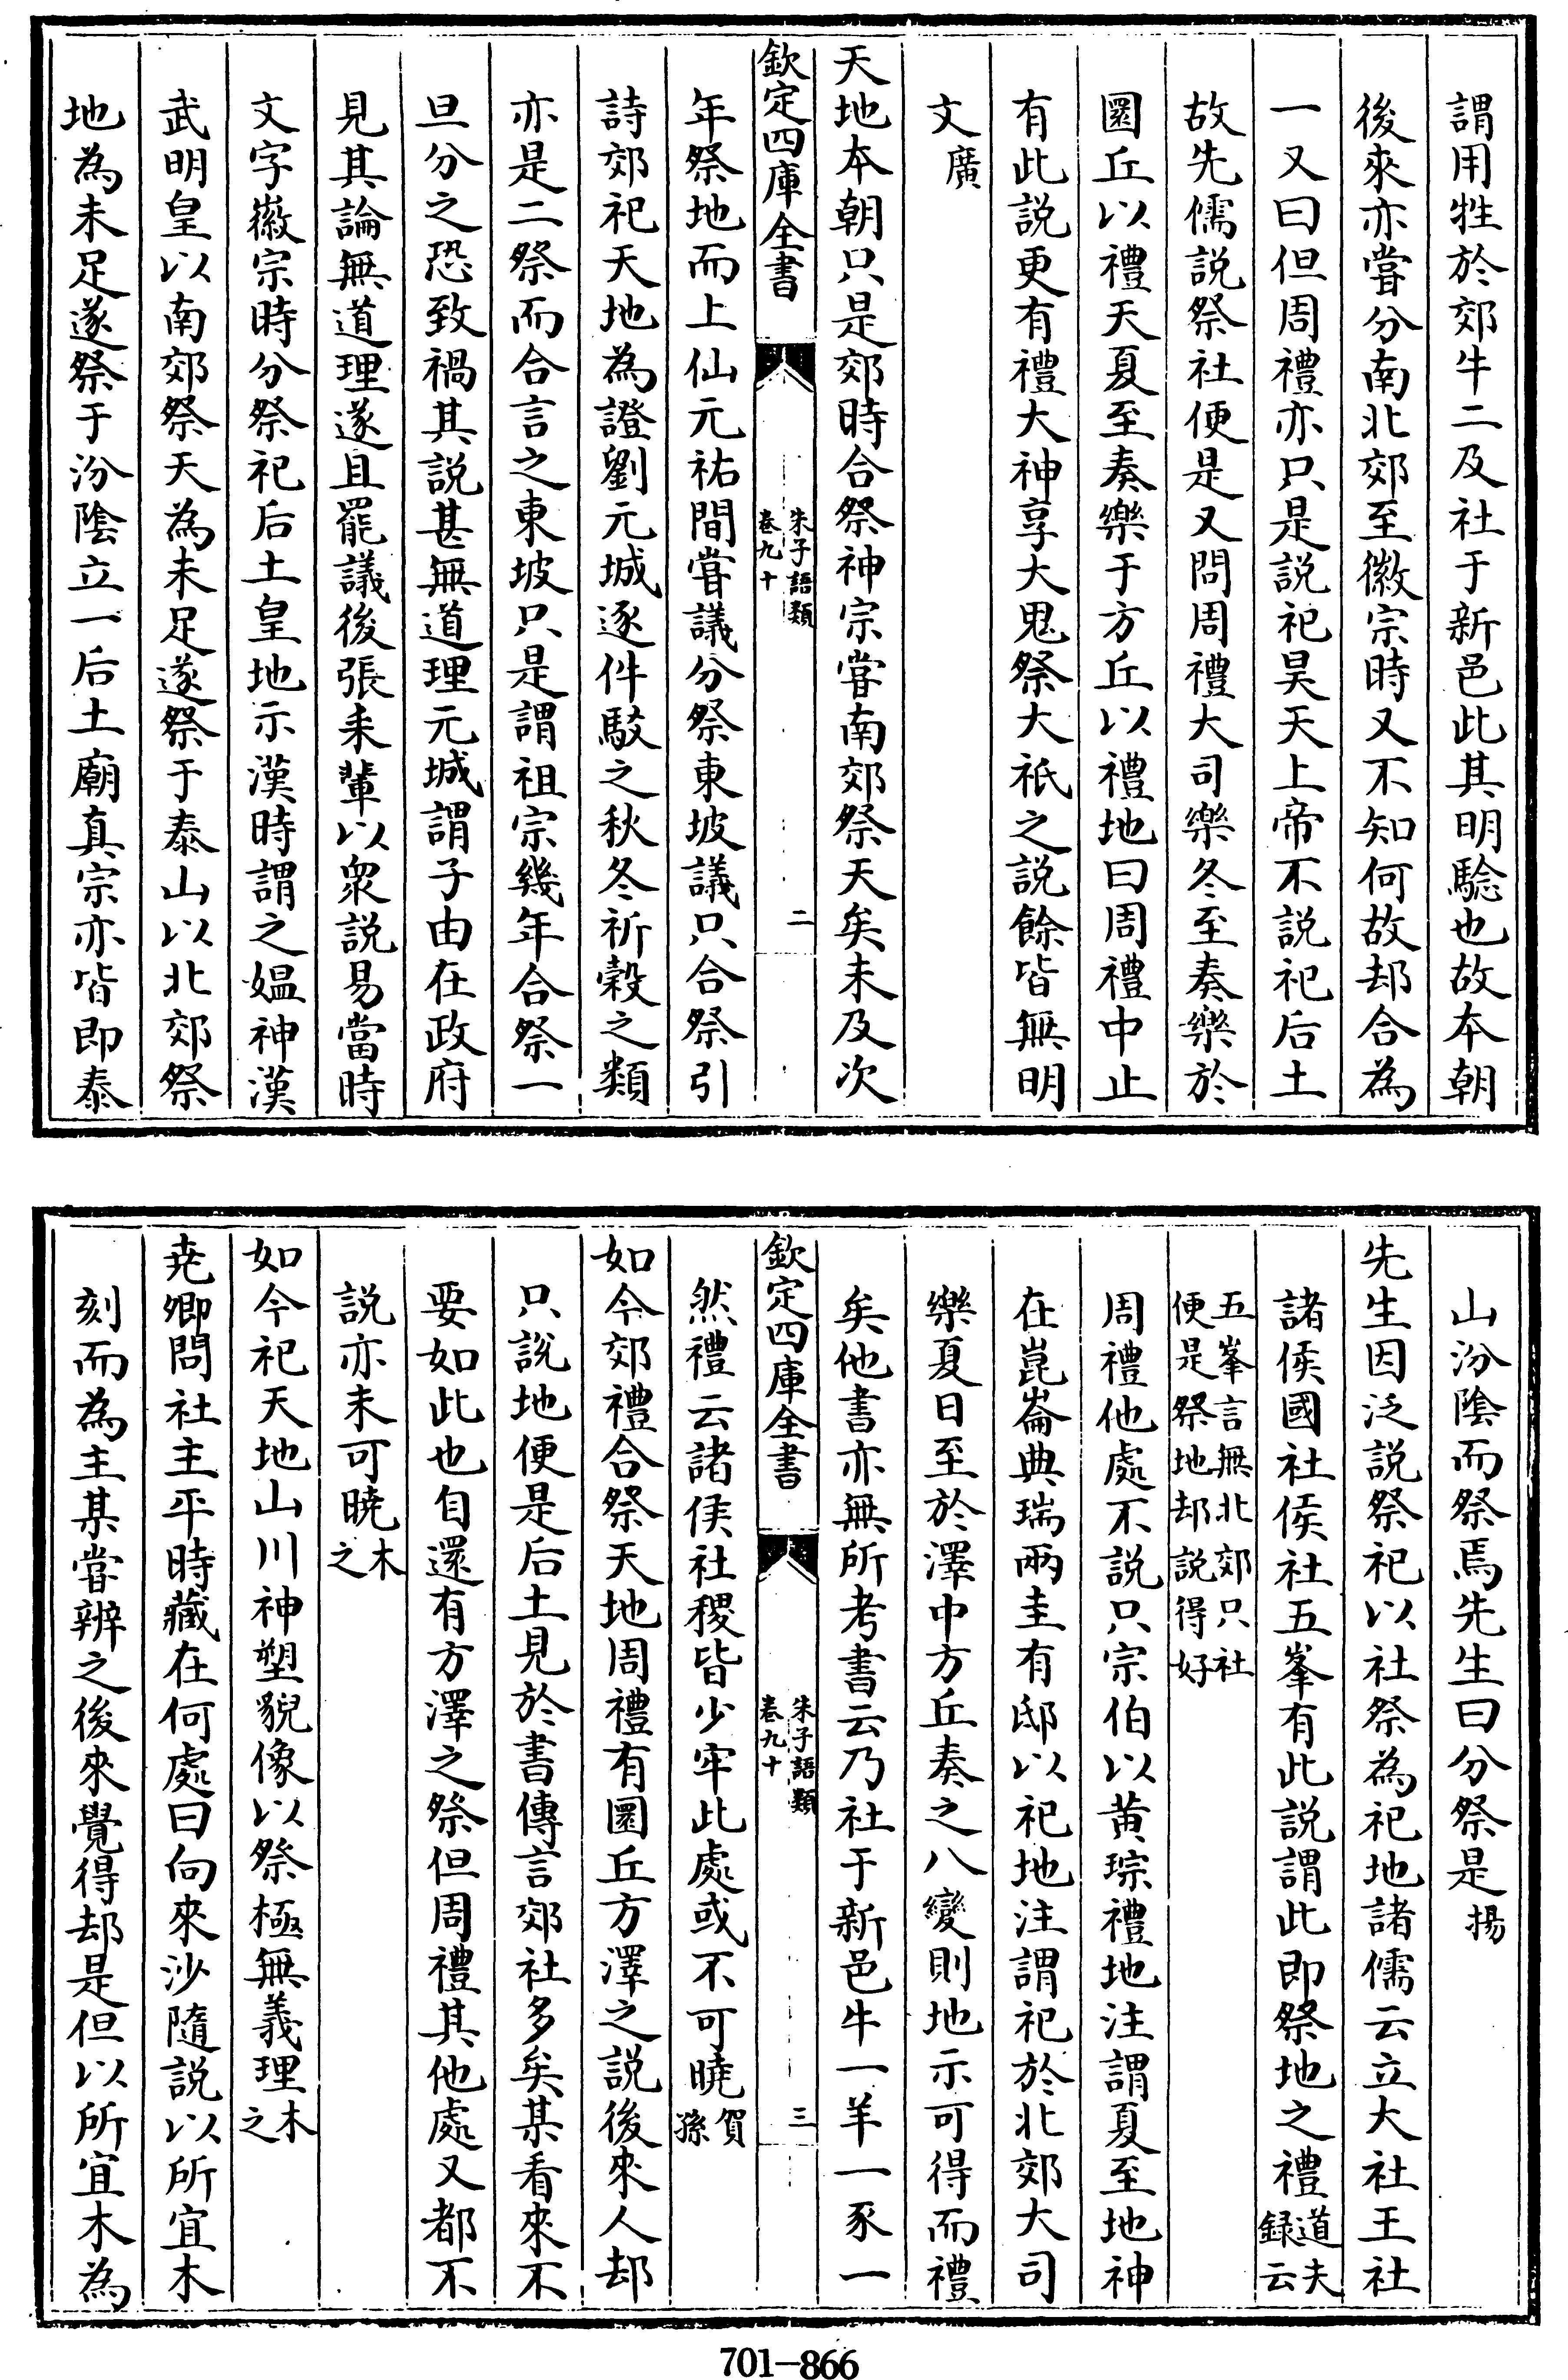 謂用牲於郊牛二及社于新邑此其明騐也故本朝
後來亦嘗分南北郊至徽宗時又不知何故却合為
一又曰但周禮亦只是説祀昊天上帝不説祀后土
故先儒説祭社便是又問周禮大司樂冬至奏樂於
圜丘以禮天夏至奏樂于方丘以禮地曰周禮中止
有此説更有禮大神享大鬼祭大祇之説餘皆無明
文廣
天地本朝只是郊時合祭神宗嘗南郊祭天矣未及次
欽定四庫全書
朱子語類
卷九十
二
年祭地而上仙元祐間嘗議分祭東坡議只合祭引
詩郊祀天地為證劉元城逐件駁之秋冬祈穀之類
亦是二祭而合言之東坡只是謂祖宗幾年合祭一
旦分之恐致禍其説甚無道理元城謂子由在政府
見其論無道理遂且罷議後張耒輩以衆説易當時
文字徽宗時分祭祀后土皇地示漢時謂之媼神漢
武明皇以南郊祭天為未足遂祭于泰山以北郊祭
地為未足遂祭于汾隂立一后土廟真宗亦皆即泰
山汾隂而祭焉先生曰分祭是揚
先生因泛説祭祀以社祭為祀地諸儒云立大社王社
諸侯國社侯社五峯有此説謂此即祭地之禮道夫
録云
五峯言無北郊只社
便是祭地却説得好
周禮他處不説只宗伯以黄琮禮地注謂夏至地神
在崑崙典瑞兩圭有邸以祀地注謂祀於北郊大司
樂夏日至於澤中方丘奏之八變則地示可得而禮
矣他書亦無所考書云乃社于新邑牛一羊一豕一
欽定四庫全書
朱子語類
卷九十
三
然禮云諸侯社稷皆少牢此處或不可曉賀
孫
如今郊禮合祭天地周禮有圜丘方澤之説後來人却
只説地便是后土見於書傳言郊社多矣某看來不
要如此也自還有方澤之祭但周禮其他處又都不
説亦未可曉木
之
如今祀天地山川神塑貌像以祭極無義理木
之
堯卿問社主平時藏在何處曰向來沙隨説以所宜木
刻而為主某嘗辨之後來覺得却是但以所宜木為
701-866